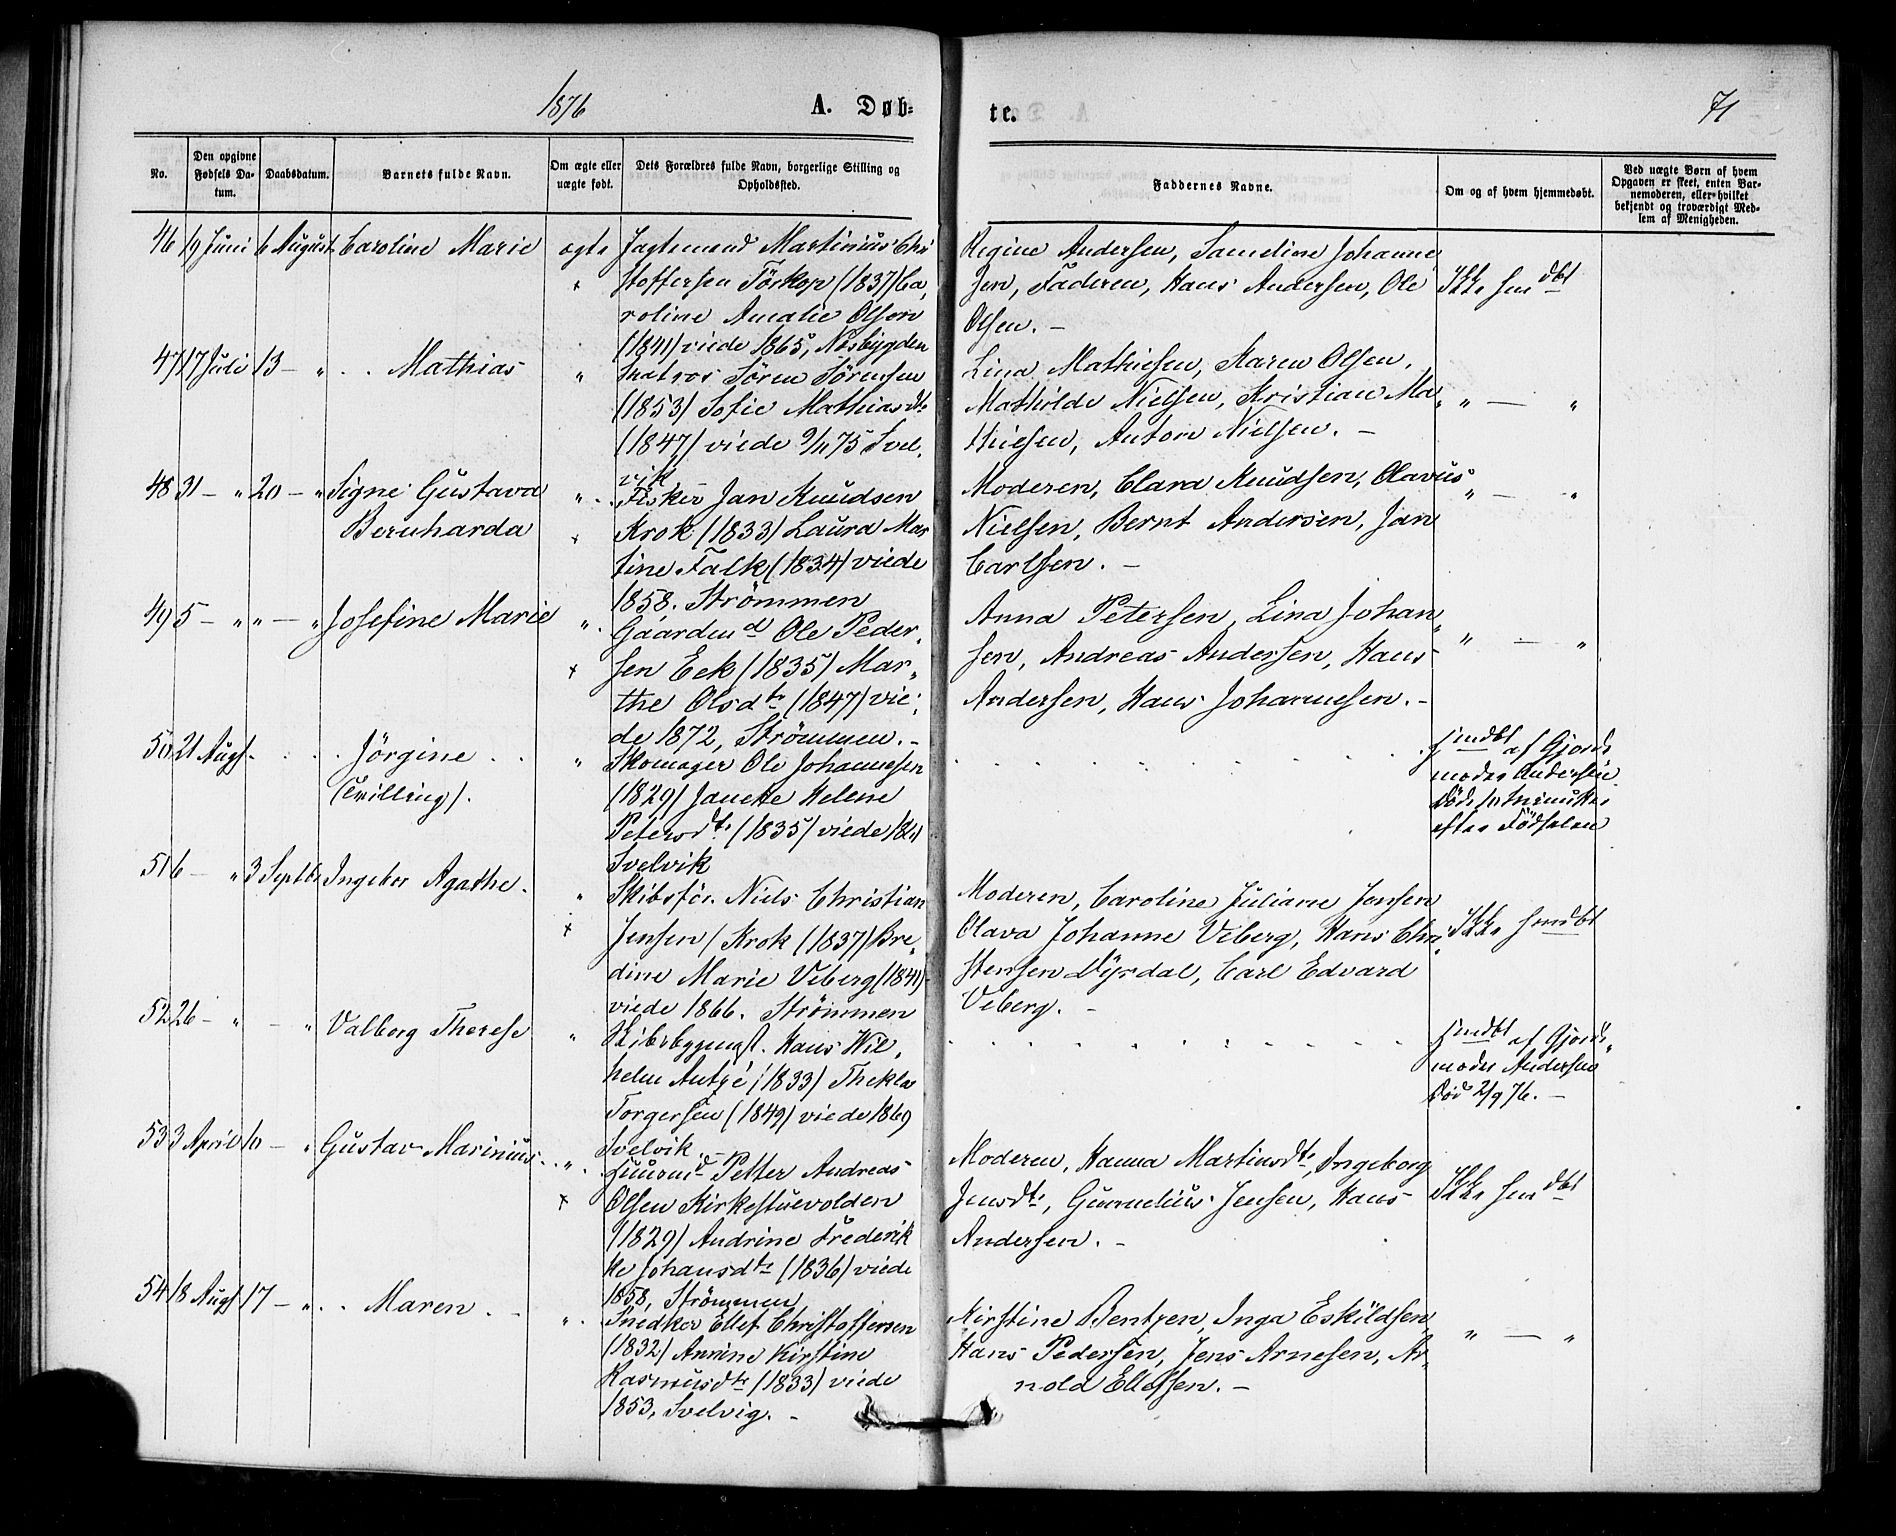 1876 A. Døb-
te. 71
No. Den opgivne Fødsels Da-tum. Daabsdatum. Barnets fulde Navn. Om ægte eller uægte født. Dets Forældres fulde Navn, borgerlige Stilling og Opholdssted.
Faddernes Navne. Om og af hvem hjemmedøbt. Ved uægte Børn af hvem Opgaven er skeet, enten Bar-nemoderen, eller hvilket bekjendt og troværdigt Med-lem af Menigheden.
46 19 Juni 6 August Caroline Marie ægte Jagtemand Martinius Chri
stoffersen Törkop (1837) Ca,
roline Amalie Olsen
(1841) viede 1865, Nesbygden
Regine Andersen, Sameline Johanne
sen, Faderen, Hans Andersen, Ole
Olsen. –
Ikke hmdbt
47 17 Juli 13 – " Mathias " Matros Sören Sörensen
(1853) Sofie Mathiasdtr
(1847) viede 9/11 75 Svel,
vik
Lina Mathiesen, Karen Olsen,
Mathilde Nielsen, Kristian Ma
thiesen, Anton Nielsen. –
" — "
48 31 – " 20 – " Signe Gustava
Bernharda
" Fisker Jan Knudsen
Krok (1833) Laura Mar
tine Falk (1834) viede
1858. Strömmen
Moderen, Clara Knudsen, Olavus
Nielsen, Bernt Andersen, Jan
Carlsen. –
" — "
49 5 – " " – " Josefine Marie " Gaardmd Ole Peder,
sen Eek (1835) Mar,
the Olsdtr (1847) vie,
de 1872, Strömmen. –
Anna Petersen, Lina Johan
sen, Andreas Andersen, Hans
Andersen, Hans Johannesen. –
" — "
50 21 Augs Jörgine
(Tvilling).
" Skomager Ole Johannesen
(1829) Janette Helene
Petersdtr (1835) viede
Svelvik
hmdbt af Gjord,
moder Andersen
död 10 Minutter
efter Födselen
51 6 – " 3 Septbr Ingebor Agathe. " Skibsför. Niels Christian
Jensen Krok (1837) Bre,
dine Marie Veberg (1841)
viede 1866. Strömmen
Moderen, Caroline Juliane Jensen
Olava Johanne Veberg, Hans Chri
stensen Dyrdal, Carl Edvard
Veberg. –
Ikke hmdbt
52 26 – " – " Valborg Therese " Skibsbygmst. Hans Wil,
helm Antjé (1833) Thekla
Torgersen (1849) viede 1869
Svelvik –
hmdbt af Gjord,
moder Andersen
död 2/9 76. –
53 3 April 10 – " Gustav Marinius " Huusmd Petter Andreas
Olsen Kirkestuevolden
(1829) Andrine Frederik
ke Johansdtr (1836) viede
1858, Strömmen
Moderen, Hanna Martinsdtr, Ingeborg
Jensdtr, Gunnelius Jensen, Hans
Andersen. –
Ikke hmdbt
54 18 Augs 17 – " Maren. " Snedker Ellef Christoffersen
(1832) Annine Kirstine
Rasmusdtr (1833) viede
1853, Svelvig. –
Kirstine Bentzen, Inga Eskildsen,
Hans Pedersen, Jens Arnesen, Ar,
nold Ellefsen. –
" — "